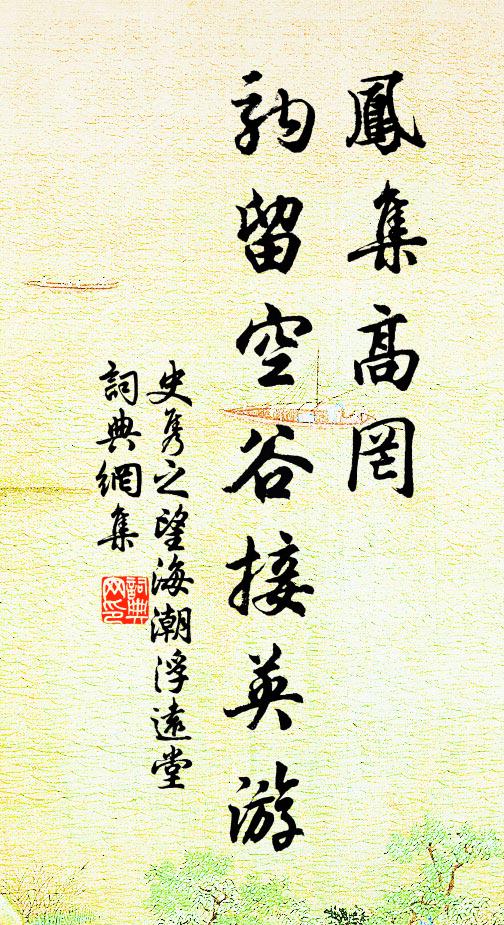 鳳集高岡
駒留空谷接英游
史隽之望海潮浮遠堂
詞典網集
詞典
网印